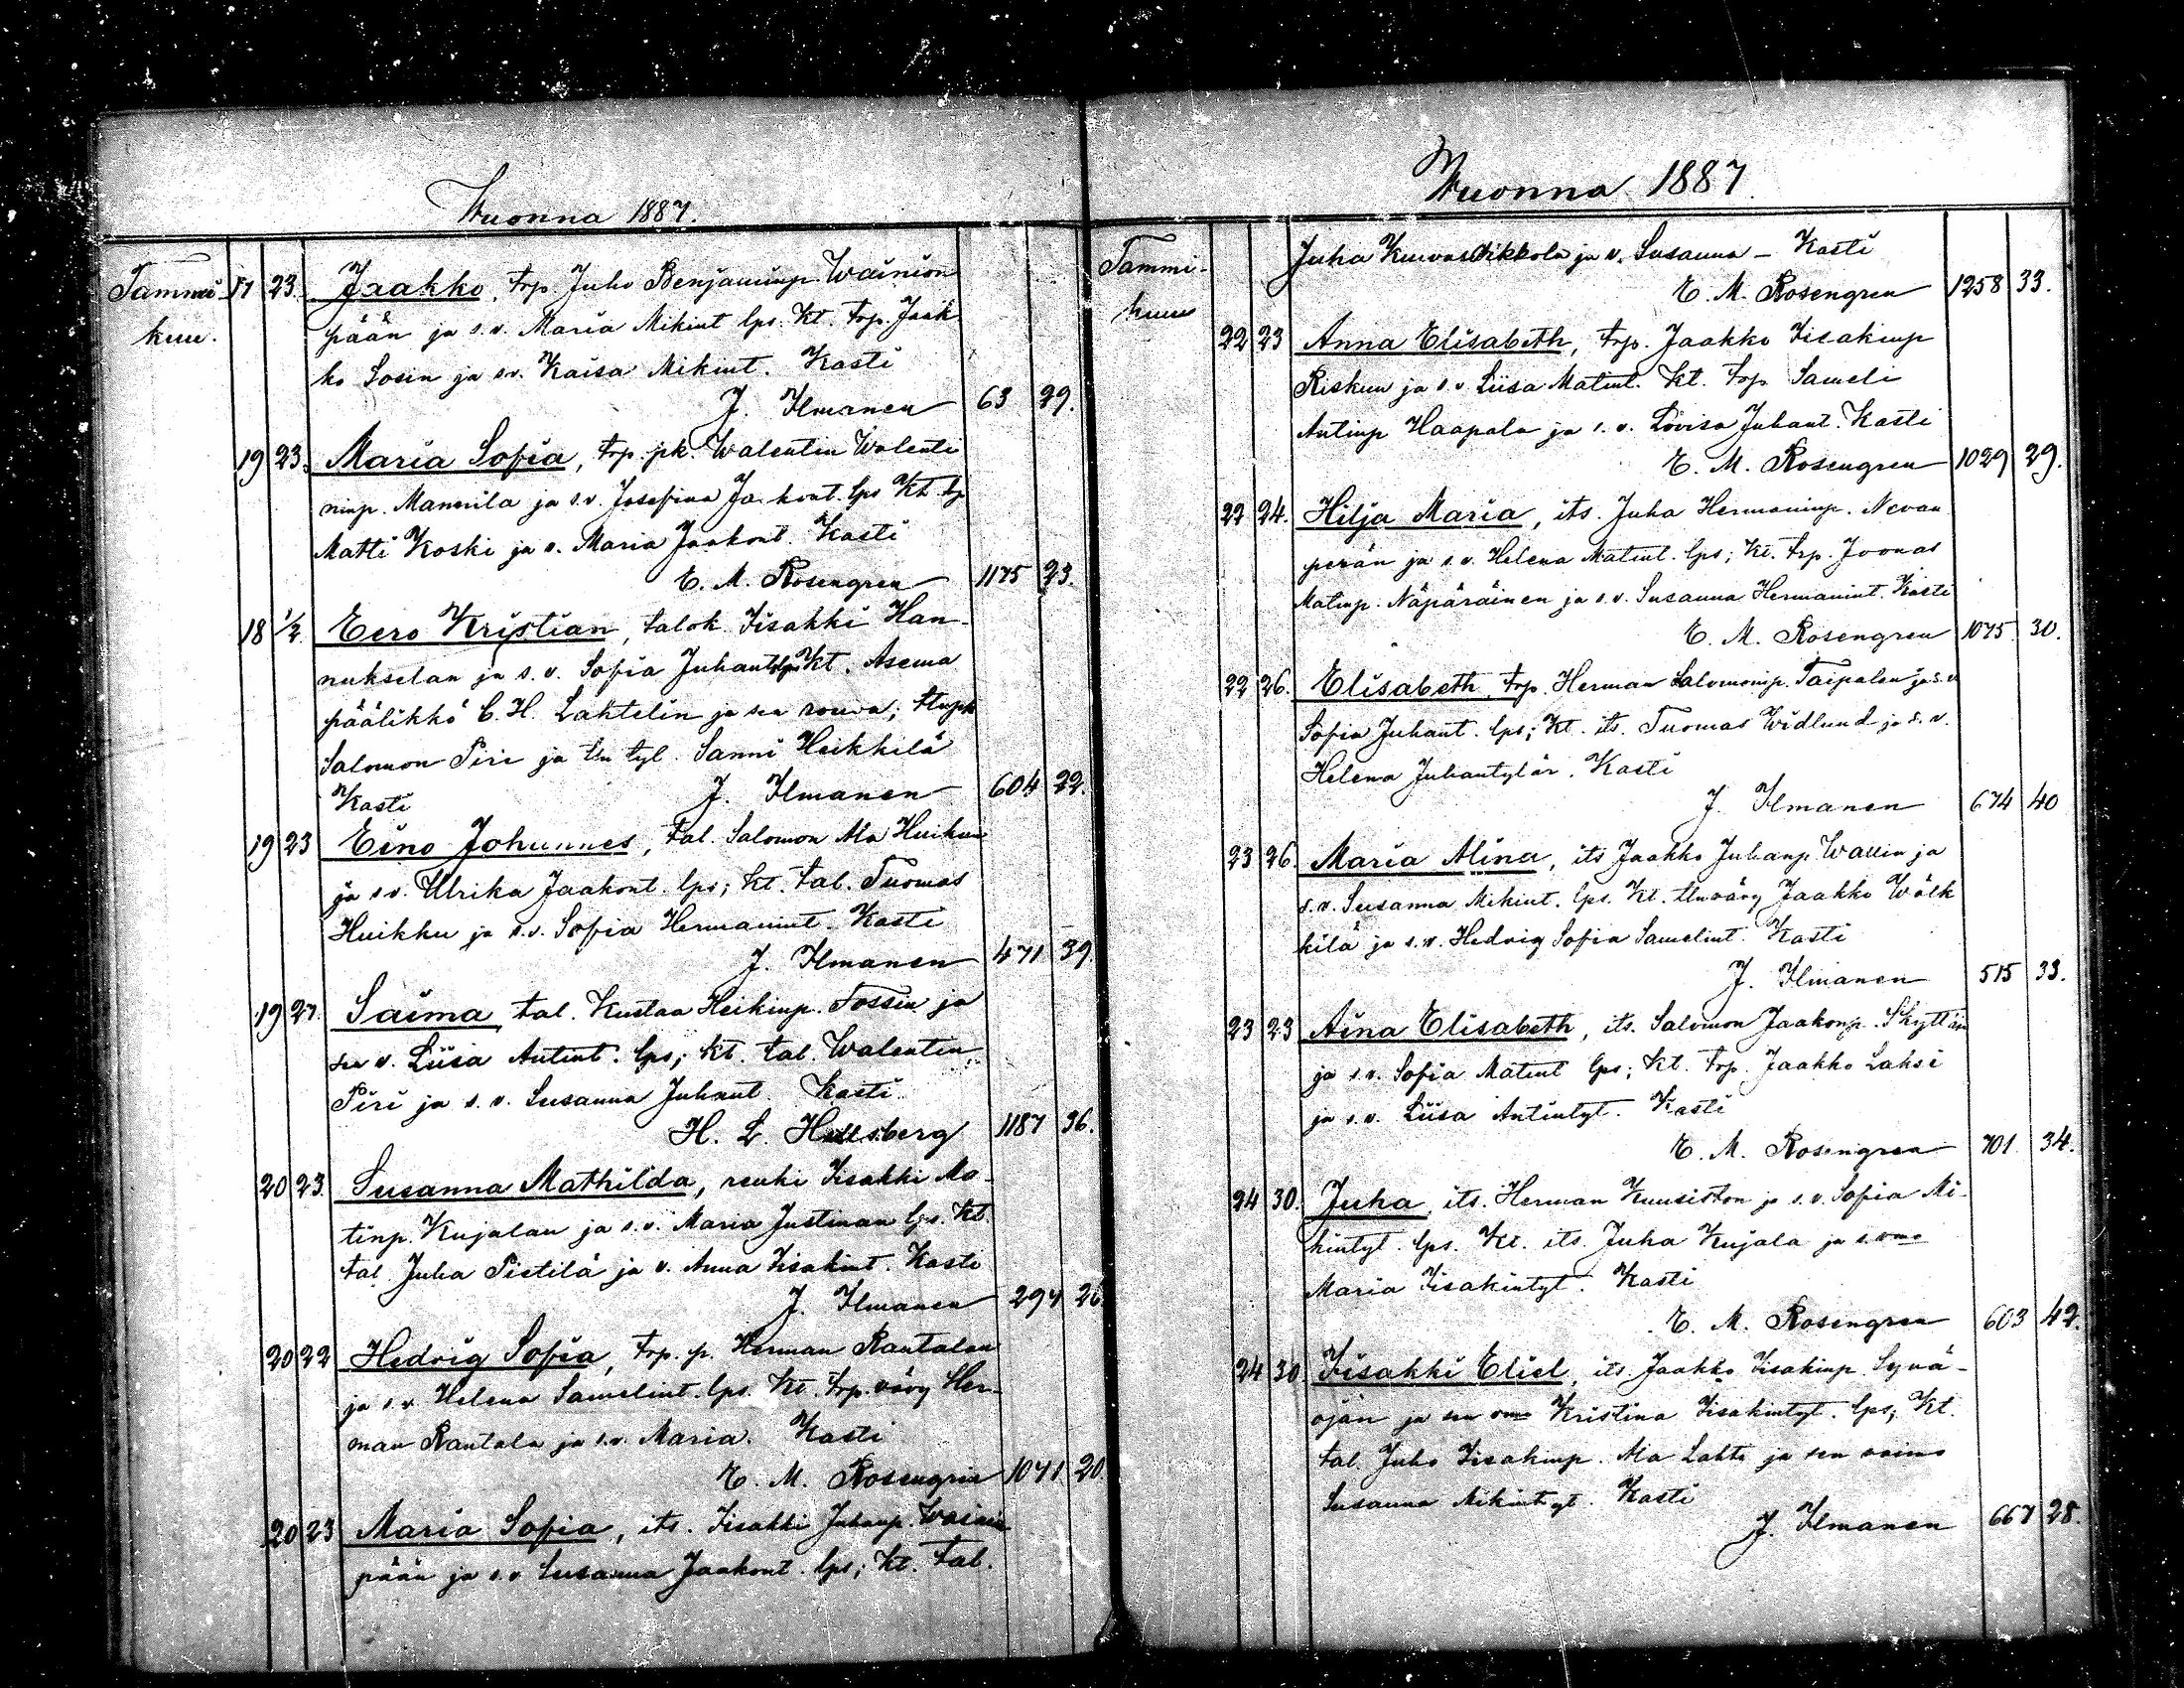 Wuonna 1887.
Tammi- 17 23. Jaakko, trp. Juho Benjaminp. Wainion
kuu. pään ja s.v. Maria Mikint lps. Kt. trp. Jaak
ko Sosin ja s.v. Kaisa Mikint. Kasti
J. Ilmanen 63 29.
19 23. Maria Sofia, trp. pk. Walentin Walenti
ninp. Mannila ja s.v. Josefina Jakont. lps Kt. tp
Matti Koski ja v. Maria Jaakont. Kasti
E. M. Rosengren 1175 23.
18 1/2. Eero Kristian, talok. Iisakki Han-
nukselan ja s.v. Sofia Juhant lps Kt. Asema
päälikkö C. H. Lahtelin ja sen rouva;
Salomon Piri ja tln tyt. Sanni Heikkilä
Kasti J. Ilmanen 604 22.
19 23 Eino Johannes, tal. Salomon Ala Huikun
ja s.v. Ulrika Jaakont. lps; Kt. tal. Tuomas
Huikku ja s.v. Sofia Hermanint. Kasti
J. Ilmanen 471 39
19 27. Saima, tal. Kustaa Heikinp. Tossin ja
sen v. Liisa Antint. lps; kt. tal. Walentin
Piri ja s.v. Susanna Juhant. Kasti
H. L. Hellsberg 1187 36.
20 23. Susanna Mathilda, renki Iisakki Ma-
tinp. Kujalan ja s.v. Maria Justinan lps. Kt
tal. Juha Pistilä ja v. Anna Iisakint. Kasti
J. Ilmanen 294 26
20 22 Hedvig Sofia, trp. p. Herman Rantalan
ja s.v. Helena Samelint. lps. Kt. trp. vävy Her-
man Rantala ja s.v. Maria. Kasti
E. M. Rosengren 1041 20.
20 23 Maria Sofia, its. Iisakki Juhanp. Wainion
pään ja s.v. Susanna Jaakont. lps; Kt. tal.
Wuonna 1887.
Tammi- Juha Kuivas Kikkola ja v. Susanna - Kasti
kuu E. M. Rosengren 1258 33.
22 23 Anna Elisabeth, trp. Jaakko Iisakinp
Riskun ja s.v. Liisa Matint. Kt. trp Sameli
Antinp Haapala ja s.v. Lovisa Juhant. Kasti
E. M. Rosengren 1029 29.
22 24. Hilja Maria, its. Juha Hermaninp. Nevan
perän ja s.v. Helena Matint. lps; Kt. trp. Joonas
Matinp. Näpäräinen ja s.v. Susanna Hermanint. Kasti
E. M. Rosengren 1075. 30.
22 26. Elisabeth, trp. Herman Salomonp. Taipalen ja s.v
Sofia Juhant. lps; Kt. its. Tuomas Widlund ja s.v.
Helena Juhantytär. Kasti
J. Ilmanen 674 40
23 26. Maria Alina, its Jaakko Juhanp. Wallin ja
s.v. Susanna Mikint. lps. Kt. tlnvävy Jaakko Wälk
kilä ja s.v. Hedvig Sofia Samelint. Kasti
J. Ilmanen 515 33.
23 23 Aina Elisabeth, its. Salomon Jaakonp. Skyttän
ja s.v. Sofia Matint lps; Kt. trp. Jaakko Laksi
ja s.v. Liisa Antintyt. Kasti
E. M. Rosengren 701. 34.
24 30. Juha, its. Herman Kuusiston ja s.v. Sofia Mi-
kintyt. lps. Kt. its. Juha Kujala ja s. vmo
Maria Iisakintyt. Kasti
E. M. Rosengren 603 42.
24 30 Iisakki Eliel, its. Jaakko Iisakinp. Syvä-
ojan ja sen vmo Kristina Iisakintyt. lps; Kt.
tal. Juho Iisakinp. Ala Lahti ja sen vaimo
Susanna Mikintyt. Kasti
J. Ilmanen 667 28.